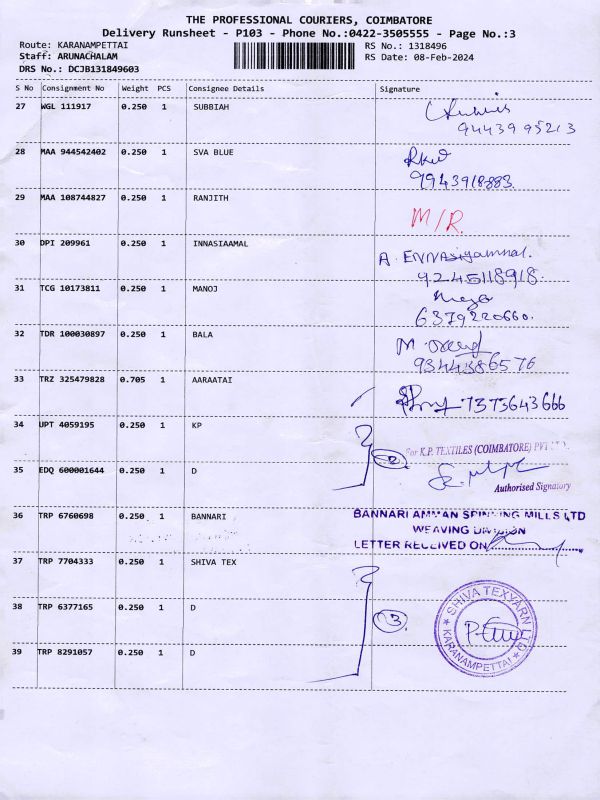 THE PROFESSIONAL COURIERS, COIMBATORE
Delivery Runsheet - P103 - Phone No.:0422-3505555 - Page No.:3
Route: KARANAMPETTAI RS No.: 1318496
Staff: ARUNACHALAM RS Date: 08-Feb-2024
DRS No.: DCJB131849603
S No Consignment No Weight PCS Consignee Details Signature
27 WGL 111917 0.250 1 SUBBIAH
9443995213
28 MAA 944542402 0.250 1 SVA BLUE
9943918883.
29 MAA 108744827 0.250 1 RANJITH
M/R.
30 DPI 209961 0.250 1 INNASIAAMAL
A. ENNASiyammal.
9245118918.
31 TCG 10173811 0.250 1 MANOJ
6379220660.
32 TDR 100030897 0.250 1 BALA
9344386576
33 TRZ 325479828 0.705 1 AARAATAI
7373643666
34 UPT 4059195 0.250 1 KP
For K.P. TEXTILES (COIMBATORE) PVT LTD.
2
35 EDQ 600001644 0.250 1 D
Authorised Signatory
36 TRP 6760698 0.250 1 BANNARI
BANNARI AMMAN SPINNING MILLS LTD
WEAVING DIVISION
LETTER RECEIVED ON
37 TRP 7704333 0.250 1 SHIVA TEX
38 TRP 6377165 0.250 1 D
3
SHIVA TEXYARN LTD
KARANAMPETTAI
39 TRP 8291057 0.250 1 D